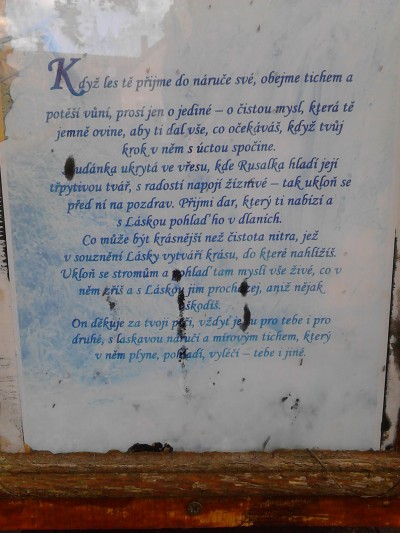 Když les tě přijme do náruče své, obejme tichem a
potěší vůní, prosí jen o jediné – o čistou mysl, která tě
jemně ovine, aby ti dal vše, co očekáváš, když tvůj
krok v něm s úctou spočine.
udánka ukrytá ve vřesu, kde Rusalka hladí její
třpytivou tvář, s radostí napojí žíznivé – tak ukloň se
před ní na pozdrav. Přijmi dar, který ti nabízí a
s Láskou pohlaď ho v dlaních.
Co může být krásnější než čistota nitra, jež
v souznění Lásky vytváří krásu, do které nahlížíš.
Ukloň se stromům a pohlaď tam myslí vše živé, co v
něm zříš a s Láskou jím procházej, aniž nějak
uškodíš.
On děkuje za tvoji péči, vždyť je tu pro tebe i pro
druhé, s laskavou náručí a mírovým tichem, který
v něm plyne, pohladí, vyléčí – tebe i jiné.